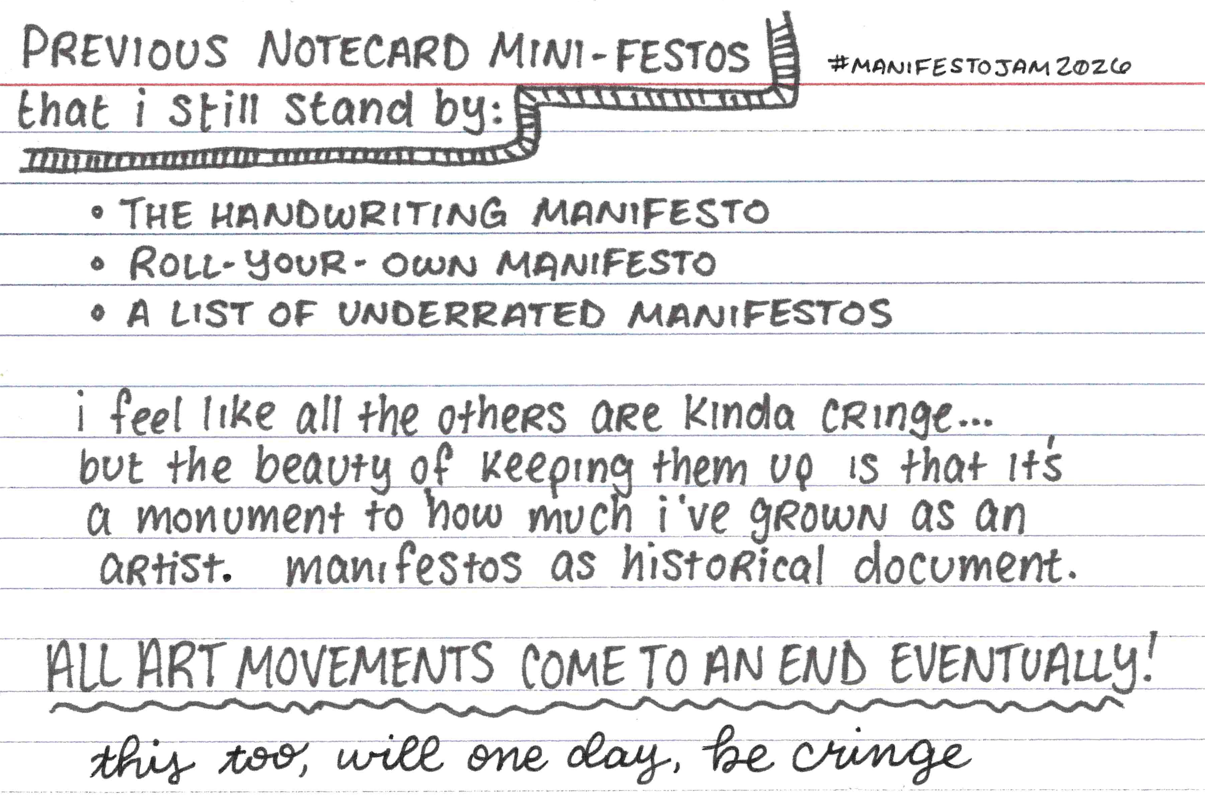 PREVIOUS NOTECARD MINI-FESTOS
#MANIFESTOJAM2026
that i still stand by:
• THE HANDWRITING MANIFESTO
• ROLL-YOUR-OWN MANIFESTO
• A LIST OF UNDERRATED MANIFESTOS
i feel like all the others are kinda cringe...
but the beauty of keeping them up is that it's
a monument to how much i've grown as an
artist. manifestos as historical document.
ALL ART MOVEMENTS COME TO AN END EVENTUALLY!
this too, will one day, be cringe